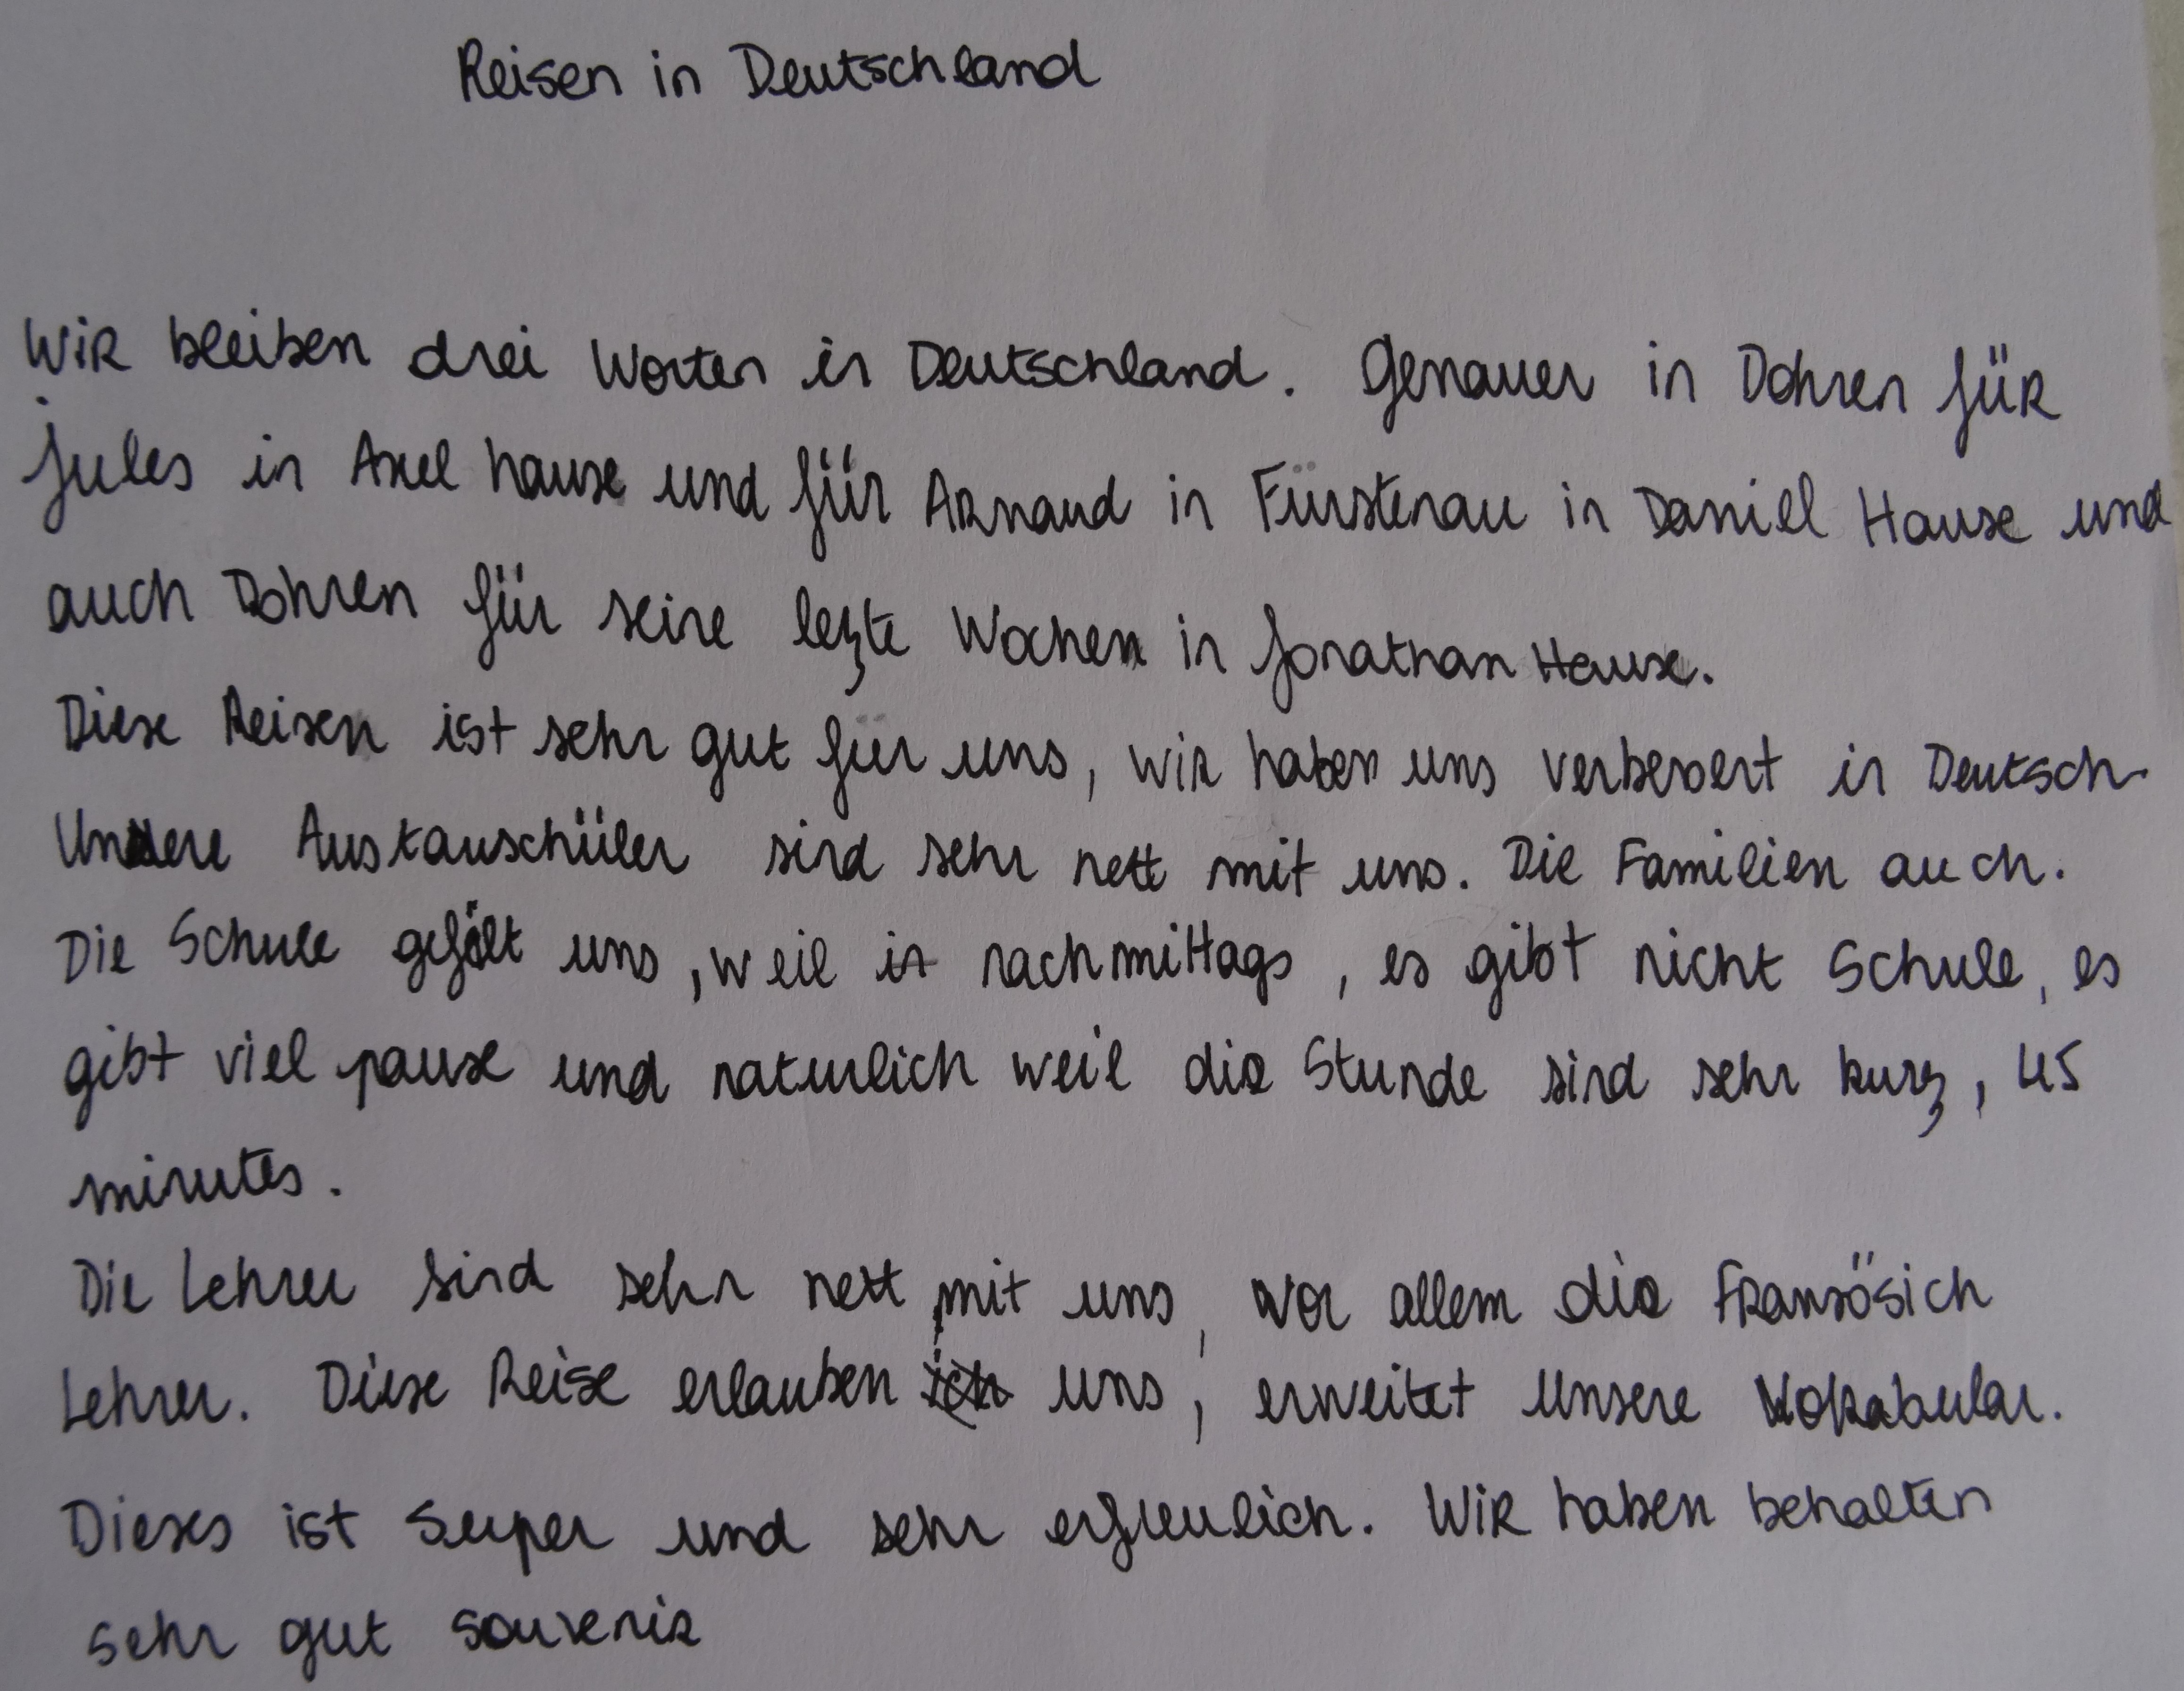 Reisen in Deutschland
Wir bleiben drei Worten in Deutschland. Genauer in Dohren für
Jules in Axel hause und für Arnaud in Fürstenau in Daniel Hause und
auch Dohren für seine lezte Wochen in Jonathan Hause.
Diese Reisen ist sehr gut für uns, wir haben uns verbessert in Deutsch
Unsere Austauschüler sind sehr nett mit uns. Die Familien auch.
Die Schule gefält uns, weil in nachmittags, es gibt nicht Schule, es
gibt viel pause und naturlich weil die Stunde sind sehr kurz, 45
minutes.
Die Lehrer sind sehr nett mit uns, vor allem die Fransösich
Lehrer. Diese Reise erlauben uns, erweitet unsere Vokabular.
Dieses ist Super und sehr erfreulich. Wir haben behalten
sehr gut souvenir